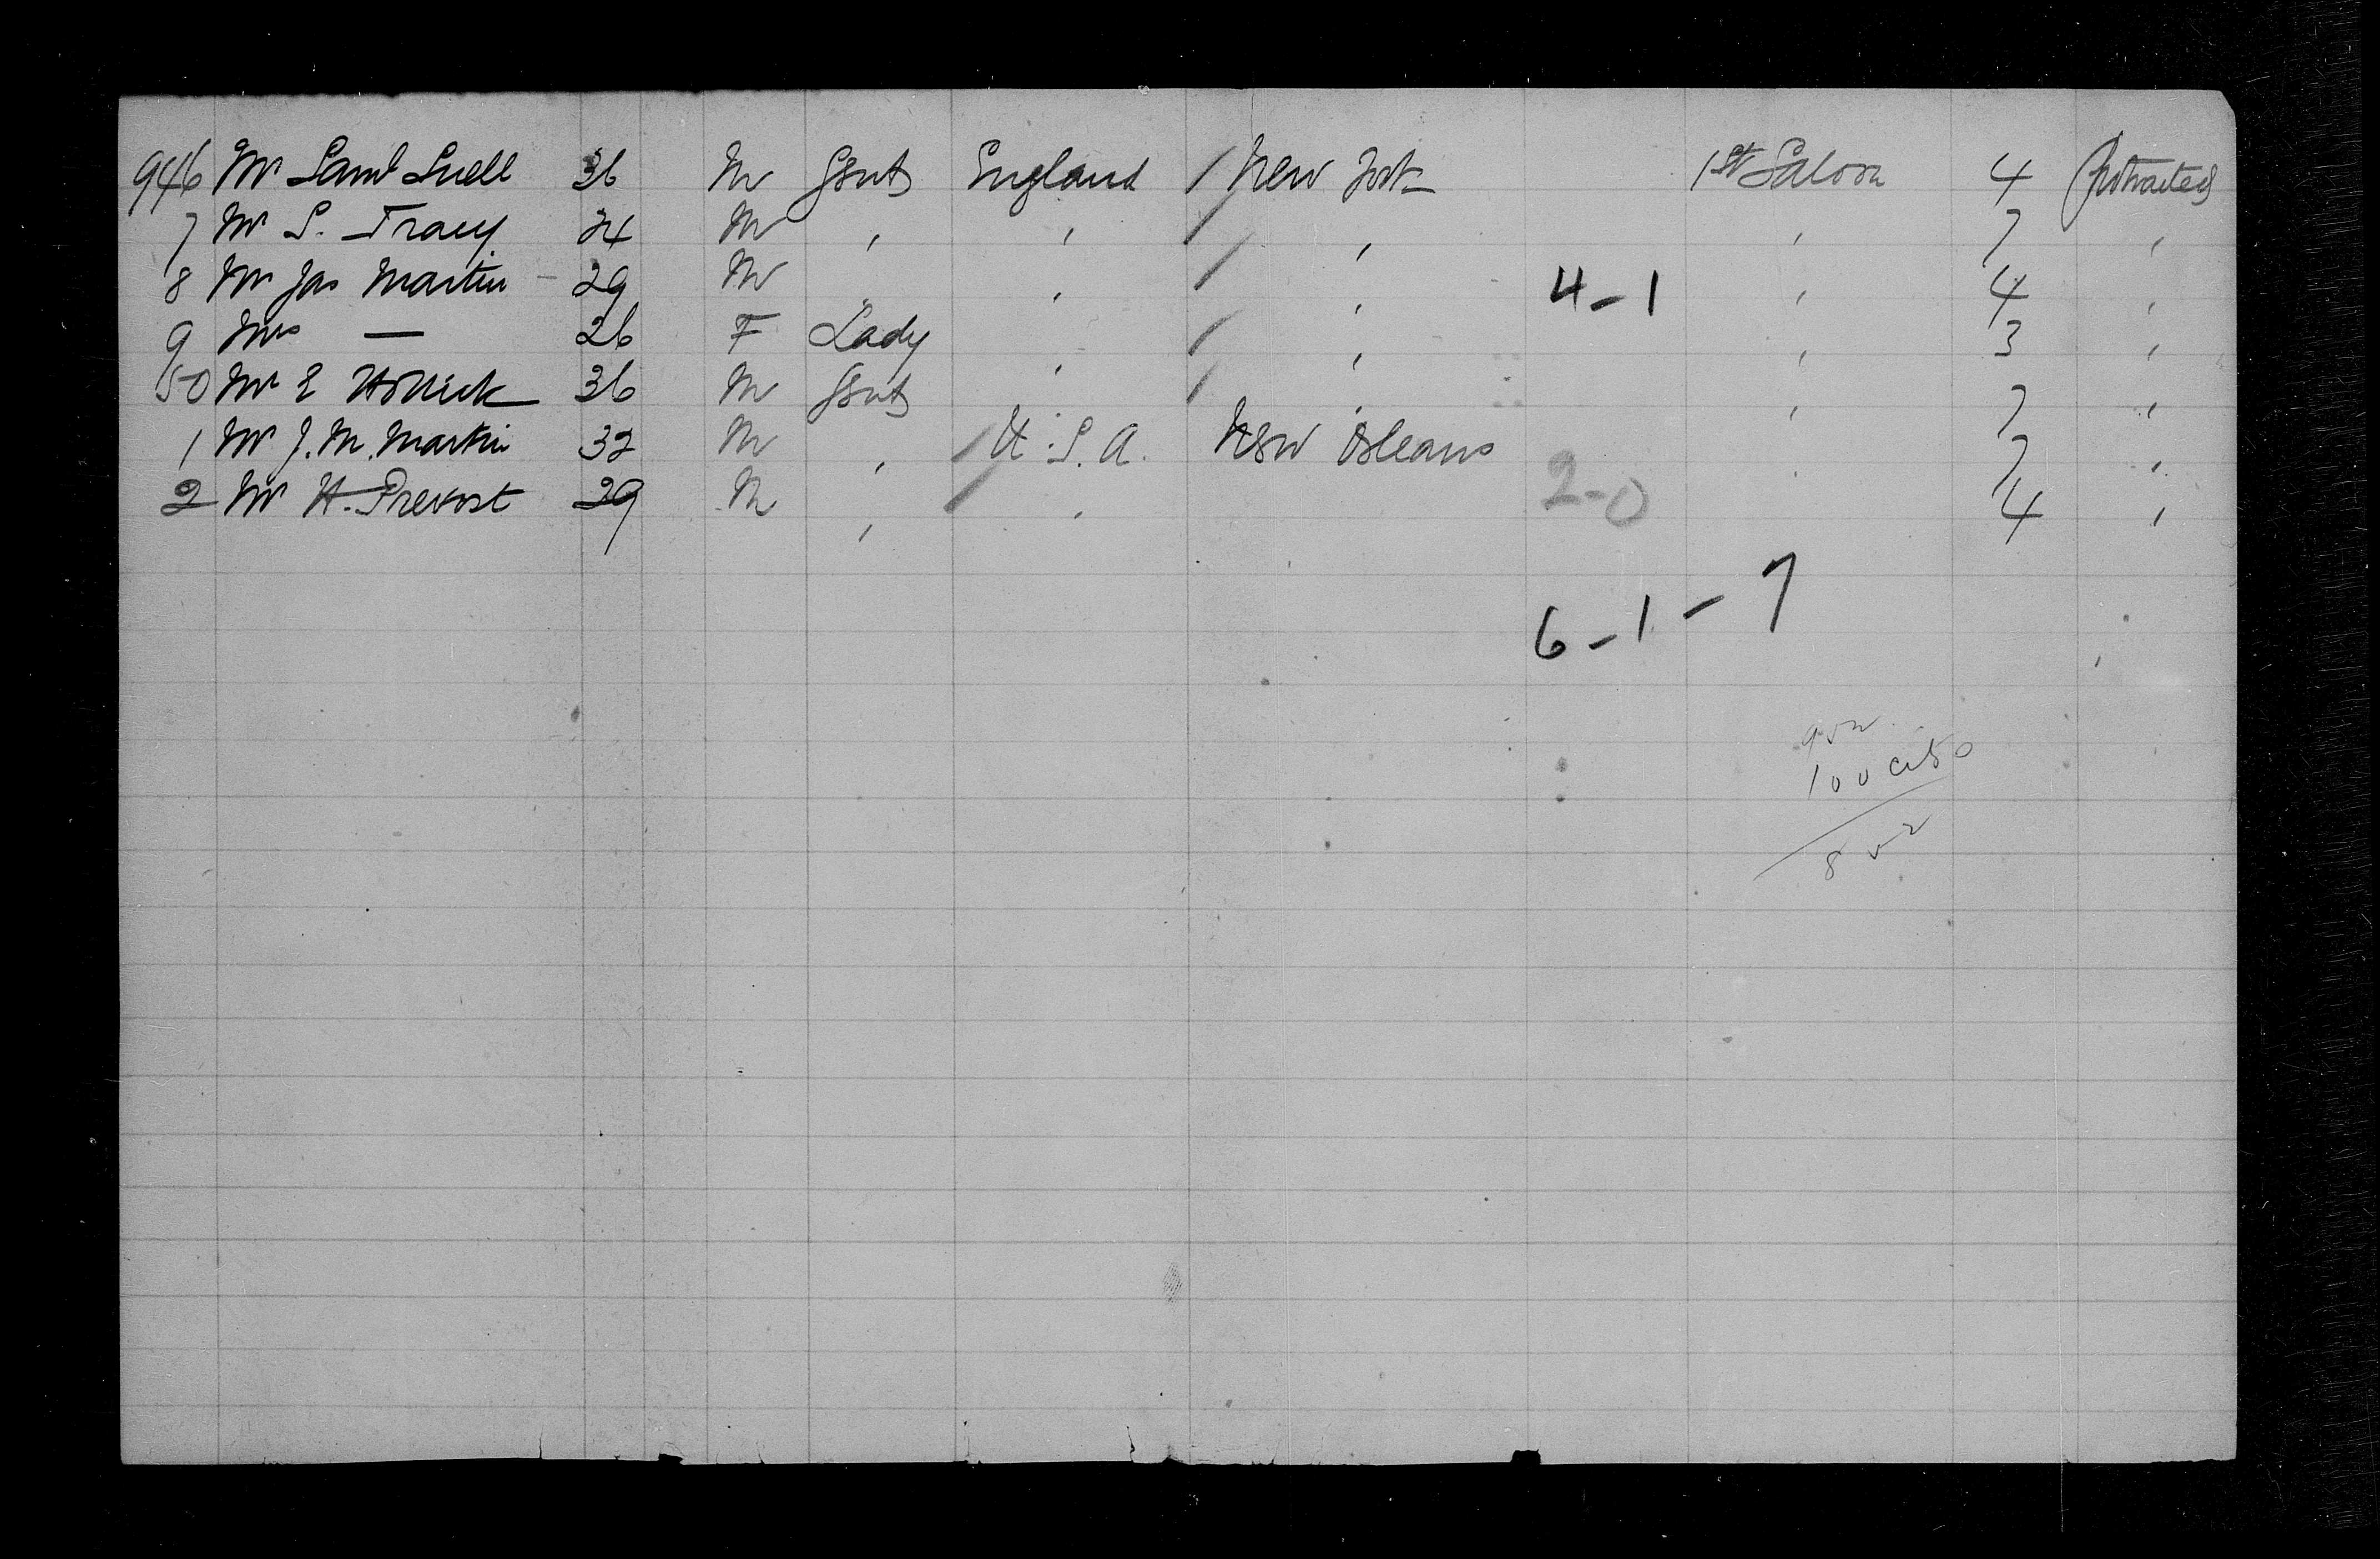 946 Mr Saml Snell 36 M Gent England / New York 1st Saloon 4 Protracted
7 Mr S. Tracy 24 M , , / , , 7 ,
8 Mr Jas Martin - 29 M " , / , 4-1 , 4 ,
9 Mrs — 26 F Lady , / , , 3 ,
50 Mr E 36 M Gent , / , , 7 ,
1 Mr J. M. Martin 32 M , / U.S.A. New Orleans . 7 ,
2 Mr H. Prevost 29 M , / , 2-0 4 ,
6-1-7
952
100
852